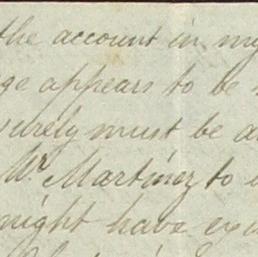 the account in my
ge appears to be
surely must be a
Mr Martinez to
might have